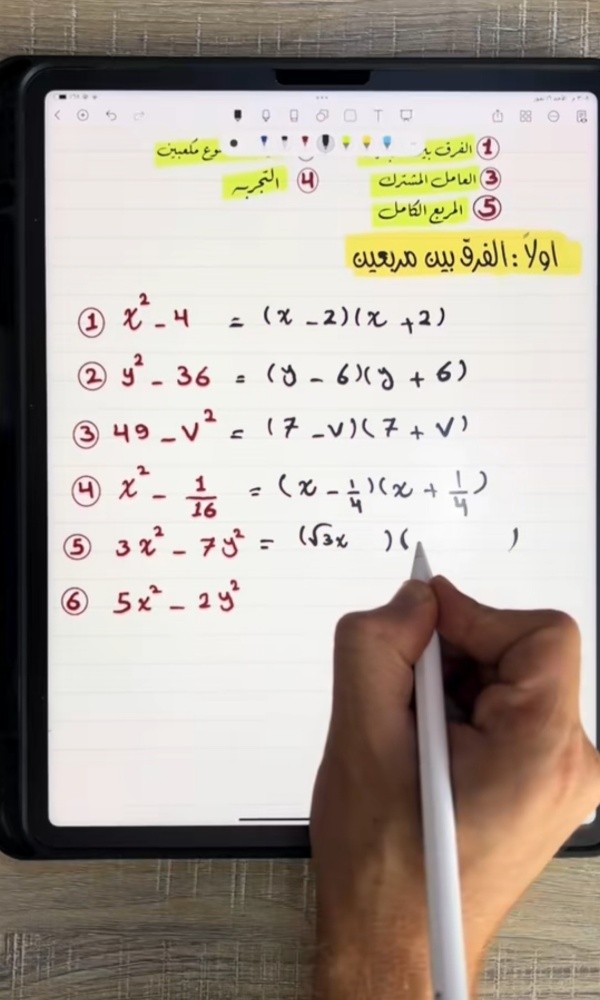 ① الفرق
③ العامل المشترك ④ التجربه
⑤ المربع الكامل
اولاً : الفرق بين مربعين
① x² - 4 = (x - 2)(x + 2)
② y² - 36 = (y - 6)(y + 6)
③ 49 - v² = (7 - v)(7 + v)
④ x² - 1/16 = (x - 1/4)(x + 1/4)
⑤ 3x² - 7y² = (√3x )( )
⑥ 5x² - 2y²